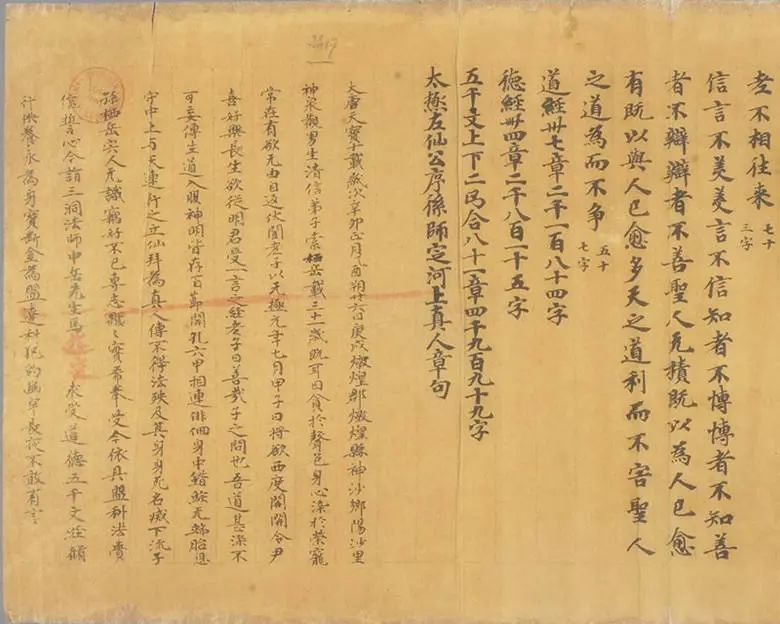 老不相往来 七十三字
信言不美美言不信知者不博博者不知善
者不辯辯者不善聖人无積既以為人已愈
有既以與人已愈多天之道利而不害聖人
之道為而不争 五十七字
道經卅七章二千一百八十四字
德經卌四章二千八百一十五字
五千文上下二弓合八十一章四千九百九十九字
太極左仙公序係師定河上真人章句
大唐天寶十載歲次辛卯正月乙酉朔廿六日庚戌燉煌郡燉煌縣神沙鄉陽沙里
神泉觀男生清信弟子索栖岳載三十一歲既耳目貪於聲色身心染於榮寵
常在有欲无由自返伏聞老子以无極元年七月甲子日將欲西度關關令尹
喜好樂長生欲從明君受一言之經老子曰善哉子之問也吾道甚深不
可妄傳生道入腹神明皆存百節關孔六甲相連徘徊身中錯綜无端胎息
守中上与天連行之立仙拜為真人傳不得法殃及其身身死名滅下流子
孫栖岳宍人无識竊好不已專志顒々實希奉受今依具盟科法賷
信誓心今詣三洞法師中岳先生馬 求受道德五千文經脩
行供養永為身寶断金為盟違科犯約幽牢長夜不敢有言